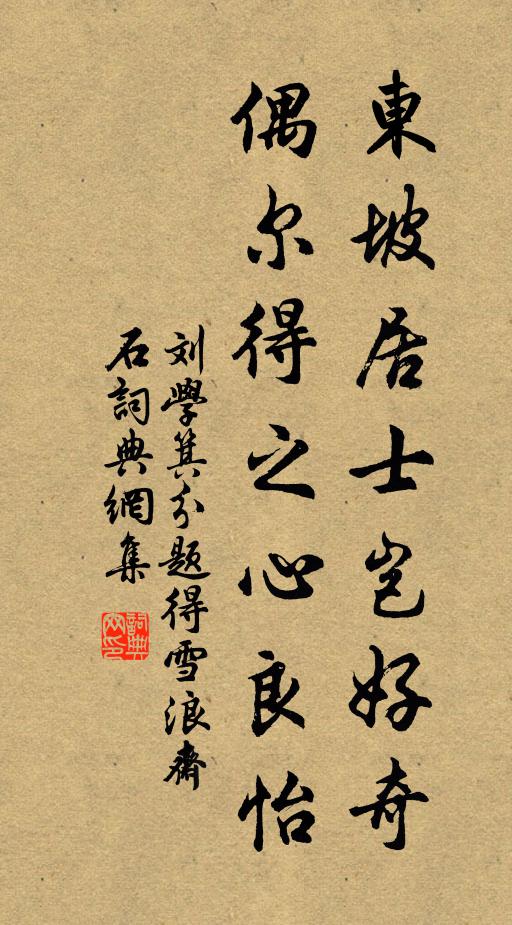 東坡居士岂好奇
偶尔得之心良怡
刘學箕分題得雪浪齋
石詞典網集
詞典
网印